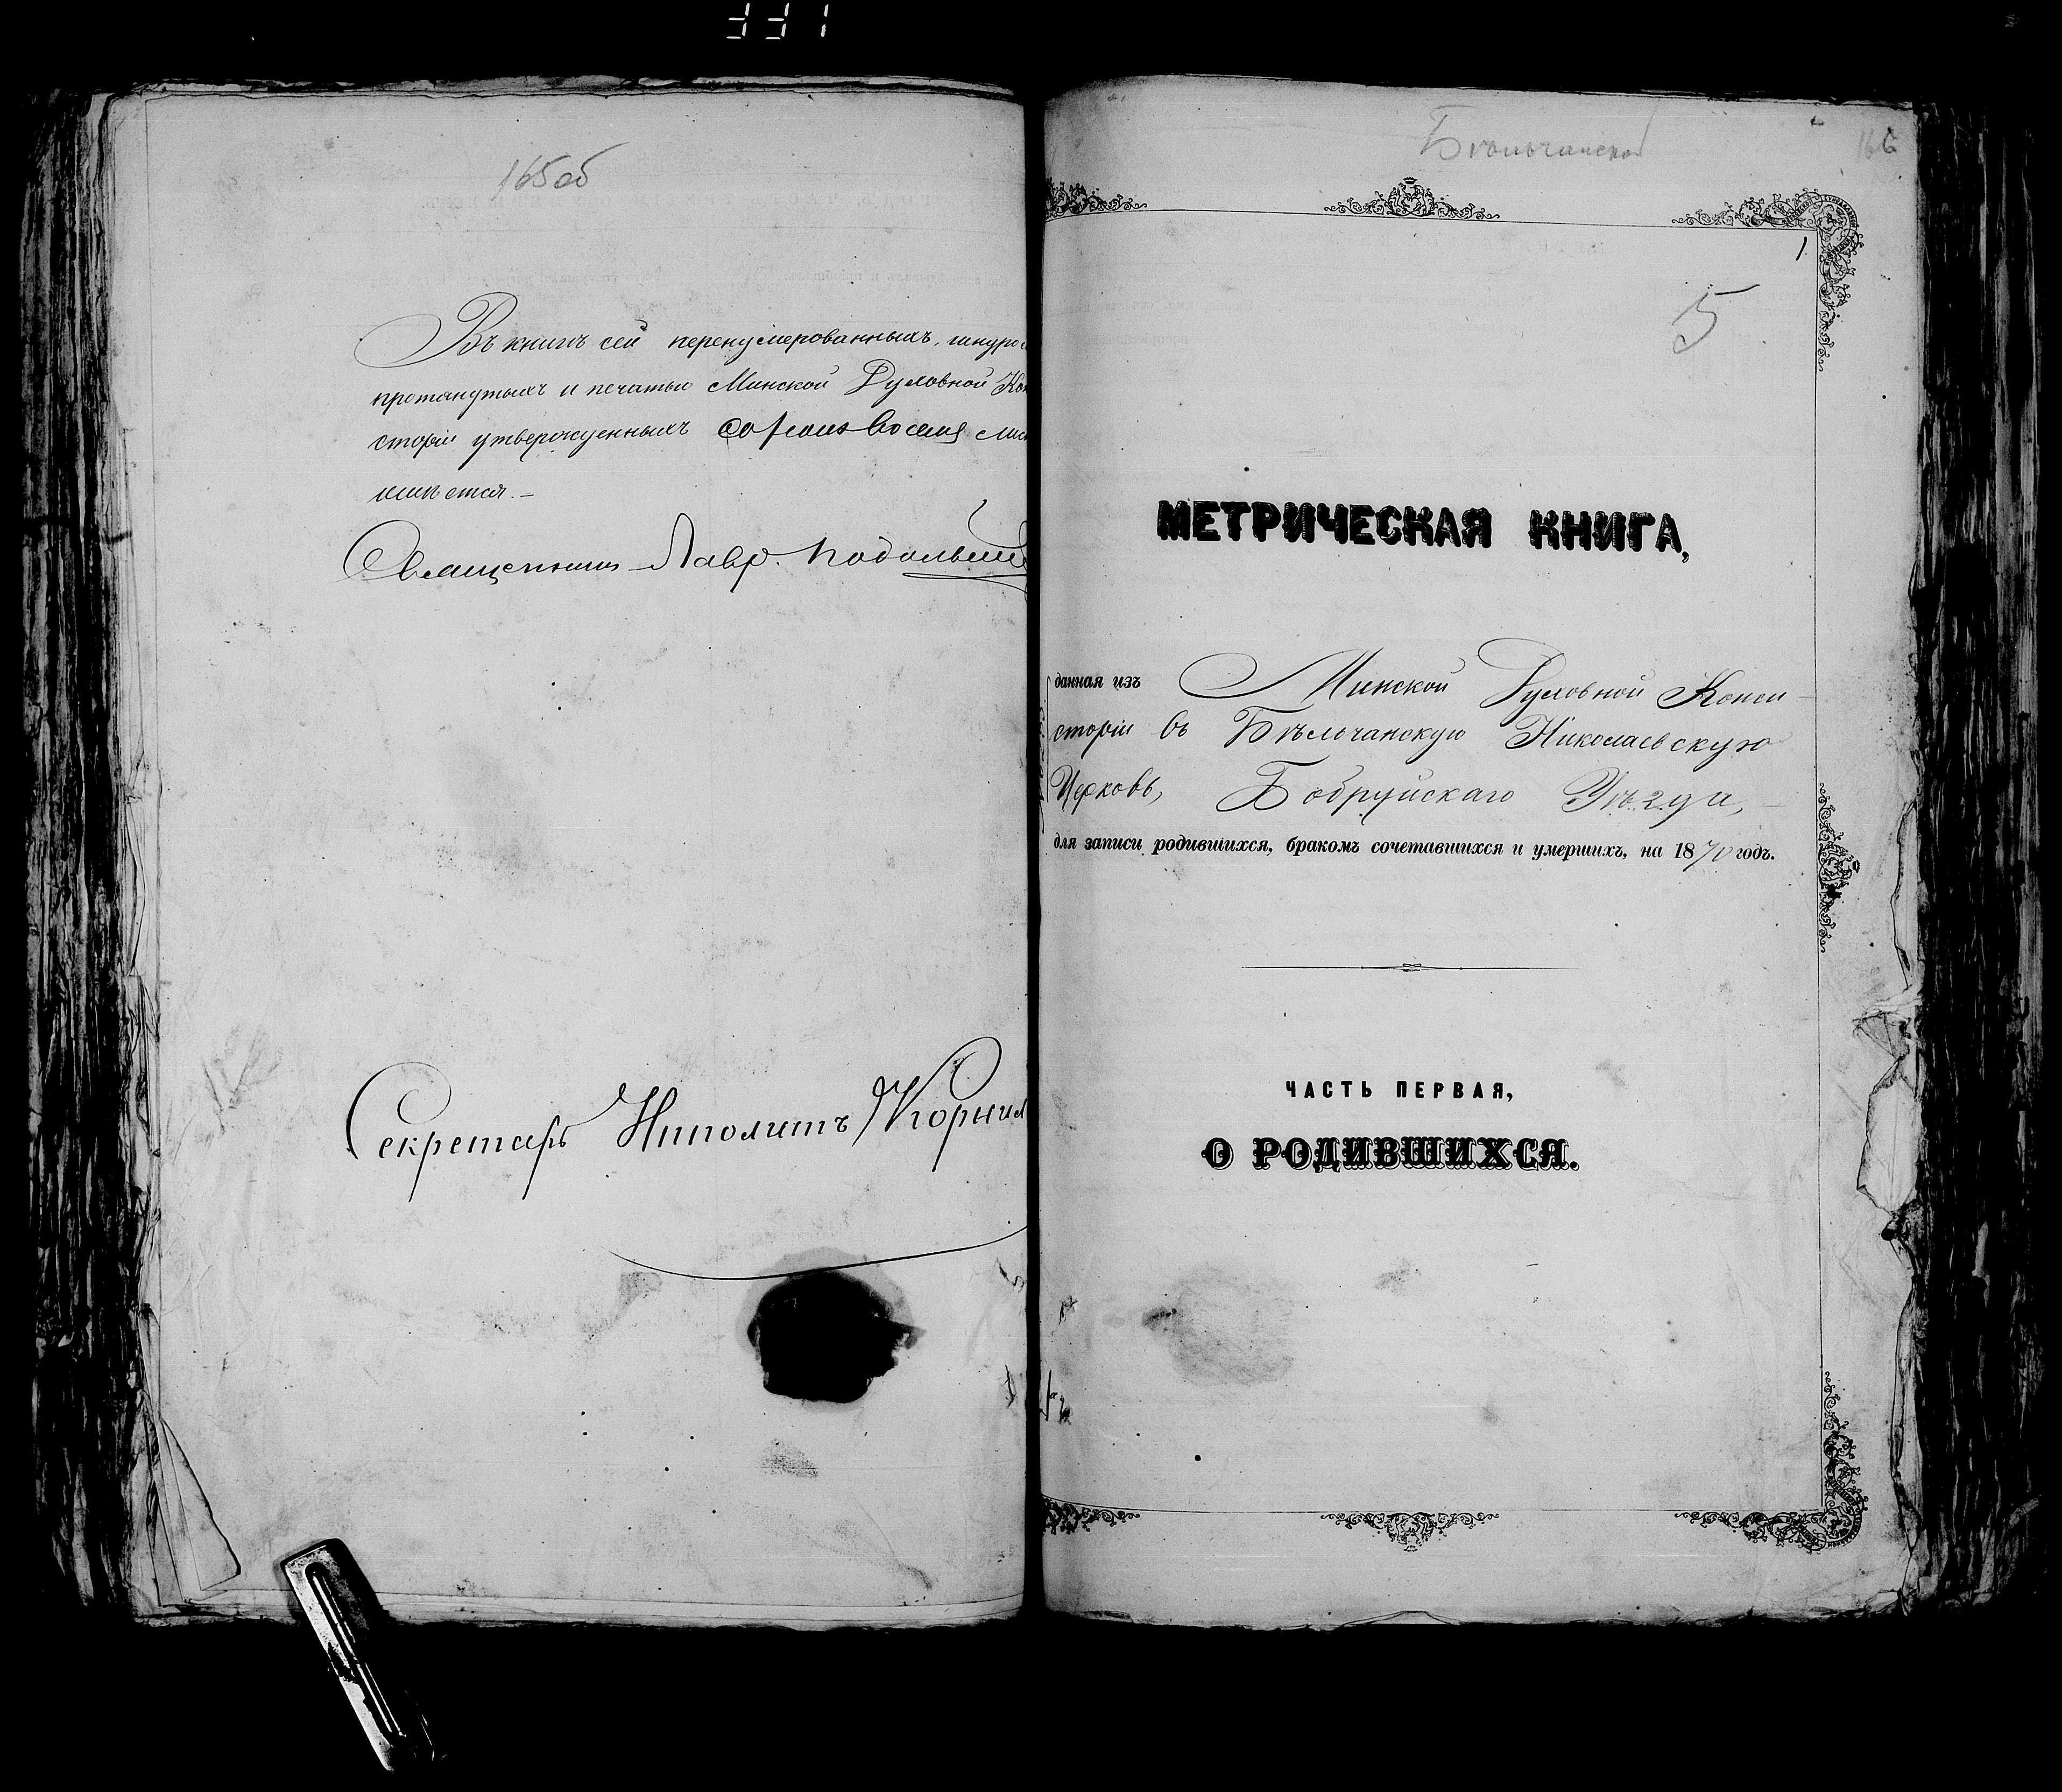 331
165об
Въ книгѣ сей перенумерованныхъ, шнуро
протянутыхъ и печатью Минской Духовной Кон
сторіи утвержденныхъ сорокъ восемь лис
имѣется.—
Священникъ Лавр. Подольск
Секретарь Ипполитъ Корнил
Бѣльчанской
166
1
5
МЕТРИЧЕСКАЯ КНИГА,
данная изъ Минской Духовной Конси-
сторіи въ Бѣльчанскую Николаевскую
Церковь, Бобруйскаго Уѣзда,
для записи родившихся, бракомъ сочетавшихся и умершихъ, на 1870 годъ.
ЧАСТЬ ПЕРВАЯ,
О РОДИВШИХСЯ.